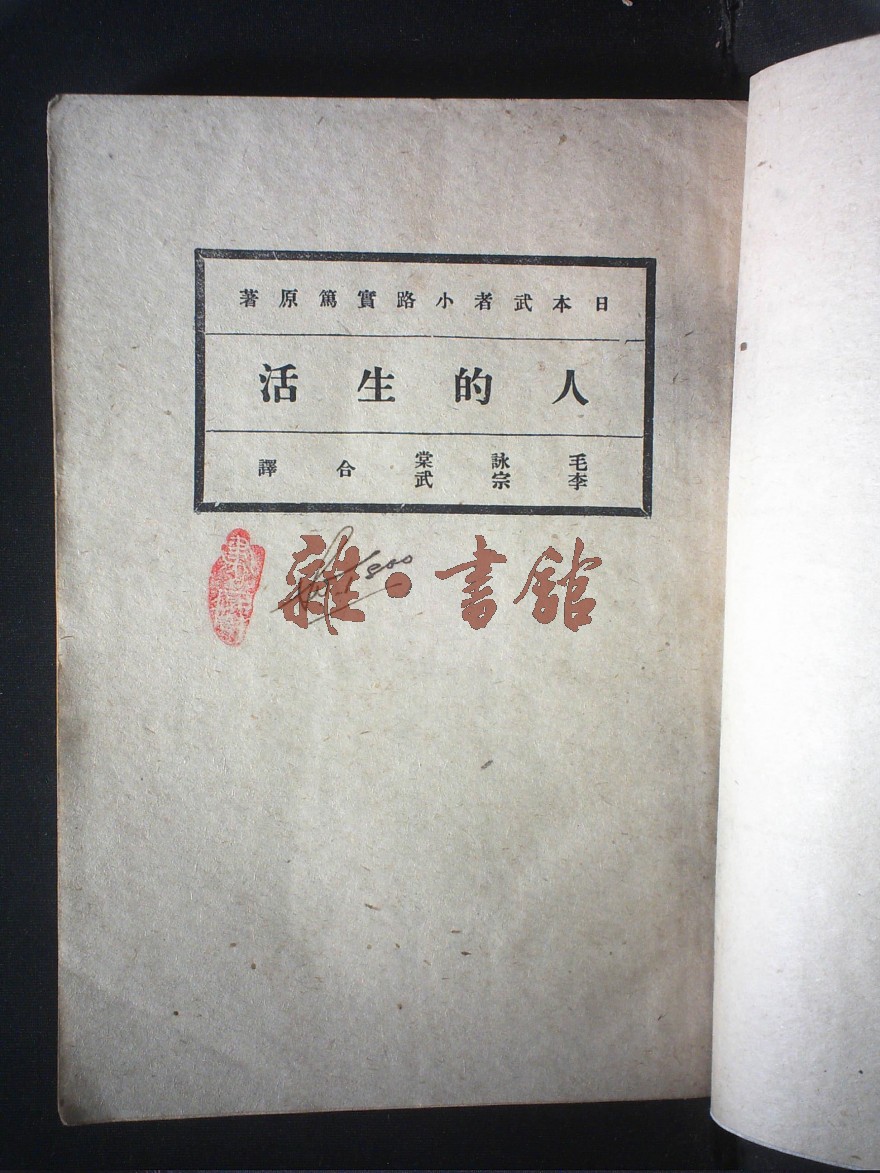 日本武者小路實篤原著
人的生活
毛詠棠
李宗武
合譯
雜·書館